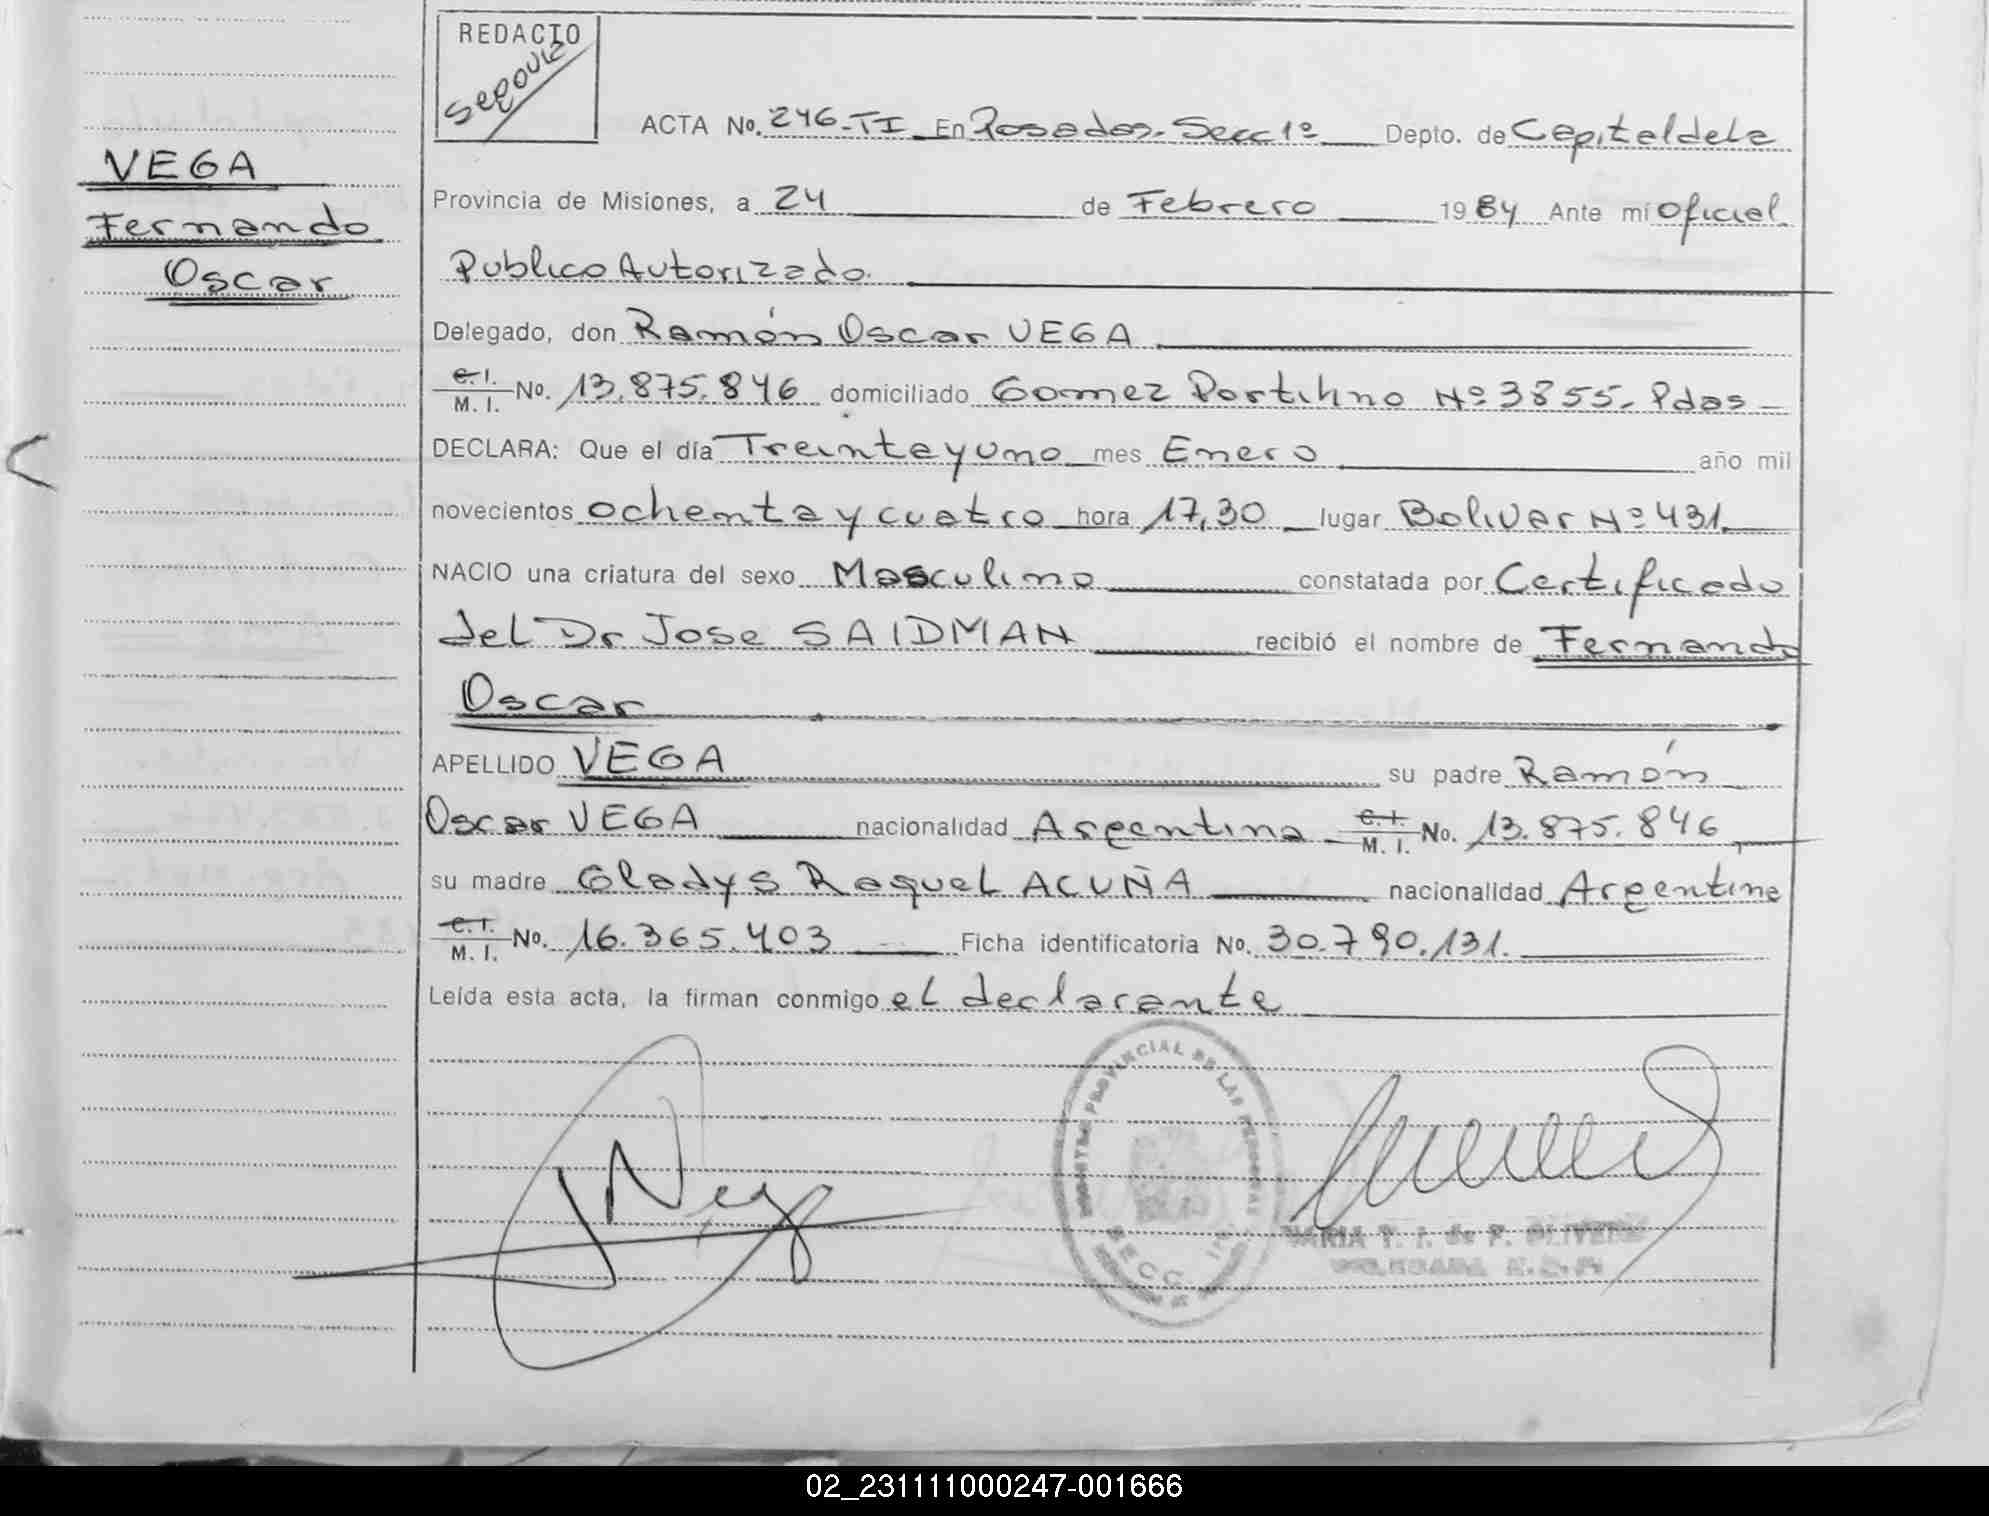 REDACTO
Segovia
ACTA No. 246-TI En Posadas-Secc 1º Depto. de Capital de la
VEGA
Fernando
Oscar
Provincia de Misiones, a 24 de Febrero 1984 Ante mi oficial
Publico Autorizado.
Delegado, don Ramón Oscar VEGA
C. I. M. I. No. 13.875.846 domiciliado Gomez Portihno Nº 3855- Pdas-
DECLARA: Que el día Treinta y uno mes Enero año mil
novecientos ochenta y cuatro hora 17,30 lugar Bolivar Nº 431.
NACIO una criatura del sexo Masculino constatada por Certificado
del Dr Jose SAIDMAN recibió el nombre de Fernando
Oscar
APELLIDO VEGA su padre Ramón
Oscar VEGA nacionalidad Argentina C. I. M. I. No. 13.875.846
su madre Gladys Raquel ACUÑA nacionalidad Argentina
C. I. M. I. No. 16.365.403 Ficha identificatoria No. 30.790.131.
Leída esta acta, la firman conmigo el declarante
PROVINCIAL DE LAS PERSONAS
SECC
MARIA T. I. de F. OLIVERA
02_231111000247-001666